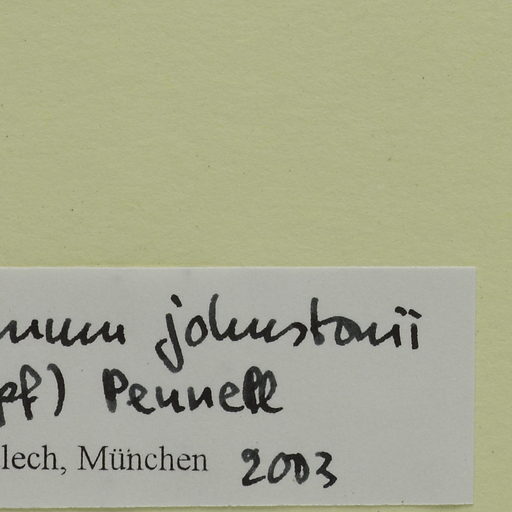 johnstonii
pf) Pennell
lech, München 2003